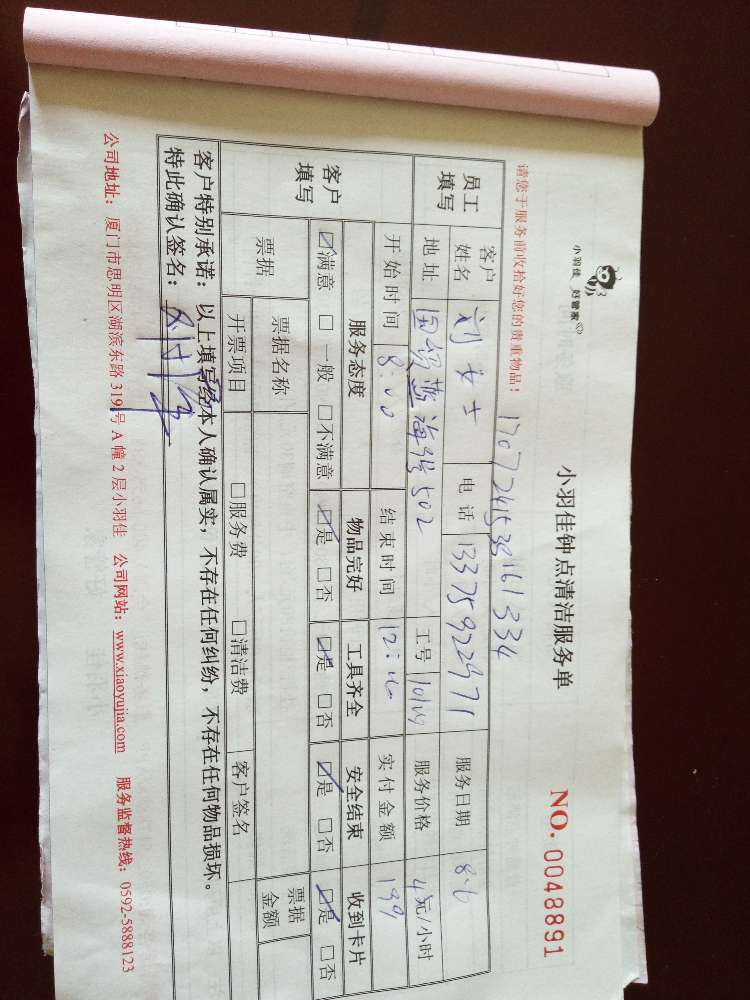 小羽佳 好管家
小羽佳钟点清洁服务单
NO. 0048891
请您于服务前收拾好您的贵重物品！
员工填写 客户姓名 刘女士 电话 13375922971 服务日期 8.6
地址 国贸蓝海 502 工号 服务价格 元/小时
客户填写 开始时间 8:00 结束时间 实付金额 199
服务态度 物品完好 工具齐全 安全结束 收到卡片
☑满意 □一般 □不满意 ☑是 □否 ☑是 □否 ☑是 □否 ☑是 □否
票据 票据名称 票据金额
开票项目 □服务费 □清洁费 客户签名
客户特别承诺：以上填写经本人确认属实，不存在任何纠纷，不存在任何物品损坏。
特此确认签名：
公司地址：厦门市思明区湖滨东路319号A幢2层小羽佳 公司网站：www.xiaoyujia.com 服务监督热线：0592-5888123